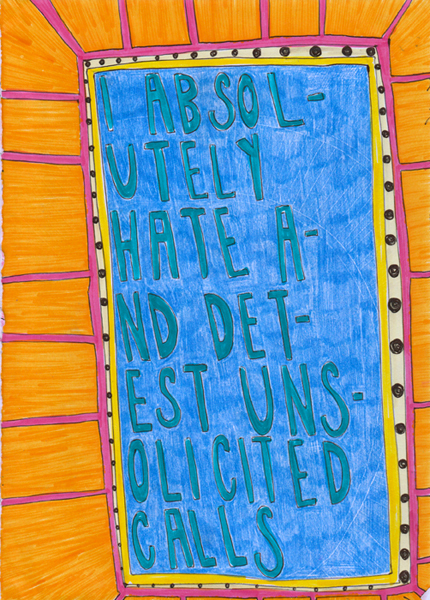 I ABSOL-
UTELY
HATE A-
ND DET-
EST UNS-
OLICITED
CALLS